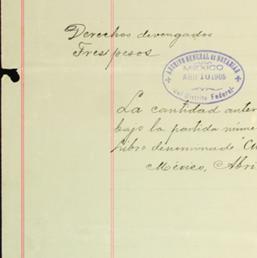 Derechos devengados
Tres pesos
ARCHIVO GENERAL DE NOTARIAS
MEXICO
ABR 10 1905
del Distrito Federal
La cantidad anter
bajo la partida núme
libro denominado
México, Abri